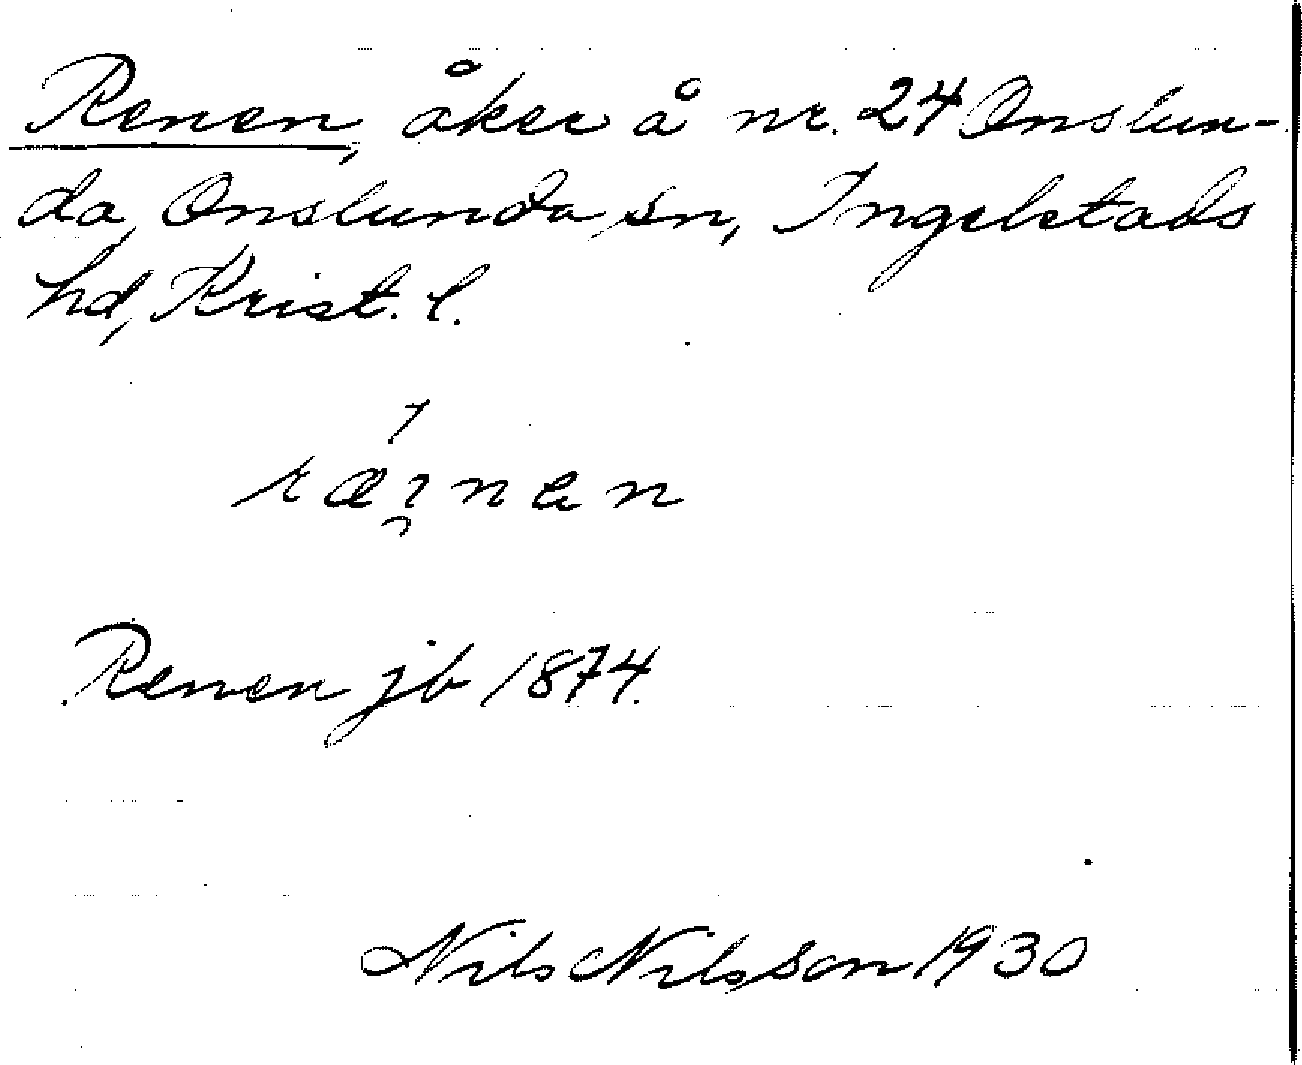 Renen, åker å nr. 24 Onslun-
da, Onslunda sn, Ingelstads
hd, Krist. l.
Renen jb 1874.
Nils Nilsson 1930